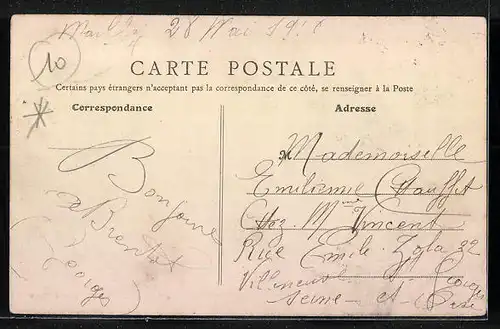 28 Mai 19
10
CARTE POSTALE
Certains pays étrangers n'acceptant pas la correspondance de ce côté, se renseigner à la Poste
Correspondance
Adresse
Bonjour
à Bientot
Georges
M Mademoiselle
Emilienne
Chez Mme Vincent
Rue Emile Zola 32
Villeneuve St Georges
Seine - et - Oise